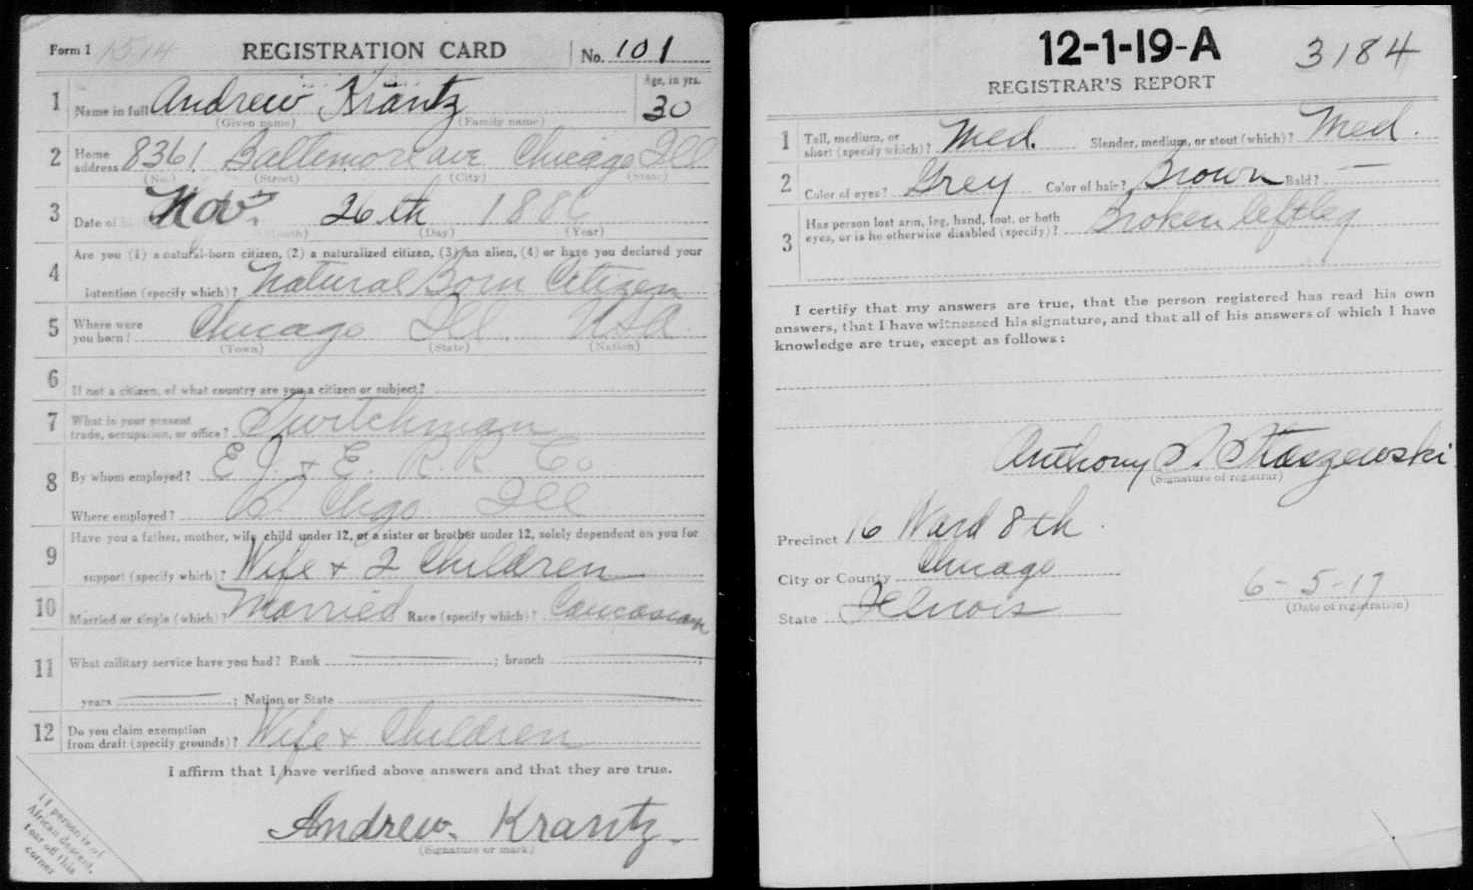 Form 1 1514 REGISTRATION CARD No. 101
1 Name in full Andrew Krantz Age, in yrs. 30
(Given name) (Family name)
2 Home address 8361 Baltemore ave Chicago Ill
(No.) (Street) (City) (State)
3 Date of Nov. 26th 1886
(Month) (Day) (Year)
4 Are you (1) a natural-born citizen, (2) a naturalized citizen, (3) an alien, (4) or have you declared your
intention (specify which)? Natural Born Citizen
5 Where were you born? Chicago Ill. USA.
(Town) (State) (Nation)
6 If not a citizen, of what country are you a citizen or subject?
7 What is your present trade, occupation, or office? Switchman
8 By whom employed? E J. & E. R.R. Co
Where employed? So. Chgo Ill
9 Have you a father, mother, wife, child under 12, or a sister or brother under 12, solely dependent on you for
support (specify which)? Wife + 2 Children
10 Married or single (which)? Married Race (specify which)? Caucasian
11 What military service have you had? Rank ; branch ;
years ; Nation or State
12 Do you claim exemption from draft (specify grounds)? Wife + Children
I affirm that I have verified above answers and that they are true.
Andrew Krantz
(Signature or mark)
If person is of
African descent,
tear off this
corner
12-1-19-A 3184
REGISTRAR'S REPORT
1 Tall, medium, or short (specify which)? Med. Slender, medium, or stout (which)? Med.
2 Color of eyes? Grey Color of hair? Brown Bald? —
3 Has person lost arm, leg, hand, foot, or both eyes, or is he otherwise disabled (specify)? Broken left leg
I certify that my answers are true, that the person registered has read his own
answers, that I have witnessed his signature, and that all of his answers of which I have
knowledge are true, except as follows:
Anthony S. Staszewski
(Signature of registrar)
Precinct 16 Ward 8th.
City or County Chicago
State Illinois
6-5-17
(Date of registration)